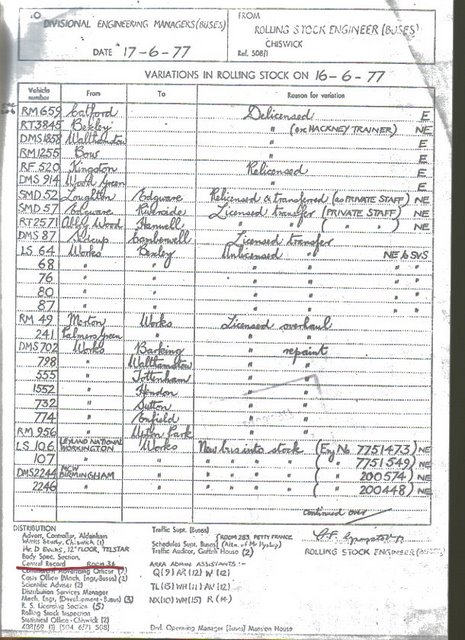 TO
DIVISIONAL ENGINEERING MANAGERS (BUSES)
DATE 17-6-77
FROM
ROLLING STOCK ENGINEER (BUSES)
CHISWICK
Ref. 508/1
VARIATIONS IN ROLLING STOCK ON 16-6-77
Vehicle number From To Reason for variation
RM 659 Catford Delicensed E
RT3845 Bexley " (ex HACKNEY TRAINER) NE
DMS1858 Walthamstow " E
RM1255 Bow " E
RF 520 Kingston Relicensed E
DMS 914 Wood Green " E
SMD 52 Loughton Edgware Relicensed & transferred (as PRIVATE STAFF) NE
SMD 57 Edgware Riverside Licensed transfer (PRIVATE STAFF) NE
RT2571 Abbey Wood Hanwell " " ( " " ) NE
DMS 87 Sidcup Camberwell Licensed transfer
LS 64 Works Bexley Unlicensed " NE to SVS
68 " " " " " "
76 " " " " " "
80 " " " " " "
87 " " " " " "
RM 49 Merton Works Licensed overhaul
241 Palmers Green " " "
DMS 702 Works Barking " repaint
798 " Walthamstow " "
555 " Tottenham " "
1552 " Hendon " "
732 " Sutton " "
774 " Enfield " "
RM 956 " Upton Park " "
LS 106 LEYLAND NATIONAL WORKINGTON Works New bus into stock (Eng No. 7751473) NE
107 " " " " " " ( " " 7751549) NE
DMS2244 MCW BIRMINGHAM " " " " " ( " " 200574) NE
2246 " " " " " " ( " " 200448) NE
continued over
ROLLING STOCK ENGINEER (BUSES)
DISTRIBUTION
Advert. Controller, Aldenham
Works Study, Chiswick (1)
Mr. D Evans, 12th FLOOR, TELSTAR
Body Spec. Section,
Central Record ROOM 36
Commercial Advertising Officer (7)
Costs Office (Mech. Engr, Buses) (2)
Scientific Adviser (2)
Distribution Services Manager
Mech. Engr. (Development - Buses) (3)
R. S. Licensing Section (5)
Rolling Stock Inspection
Statistical Office - Chiswick (2)
Traffic Supt. (Buses)
Schedules Supt. (Buses) (ROOM 283 PETTY FRANCE
Traffic Auditor, Griffith House (2)
AREA ADMIN ASSISTANTS:-
Q (9) AR (12) W (12)
TL (15) WH (11) AV (12)
NX (10) WN (15) R (14)
Divl. Operating Manager (Buses) Mansion House